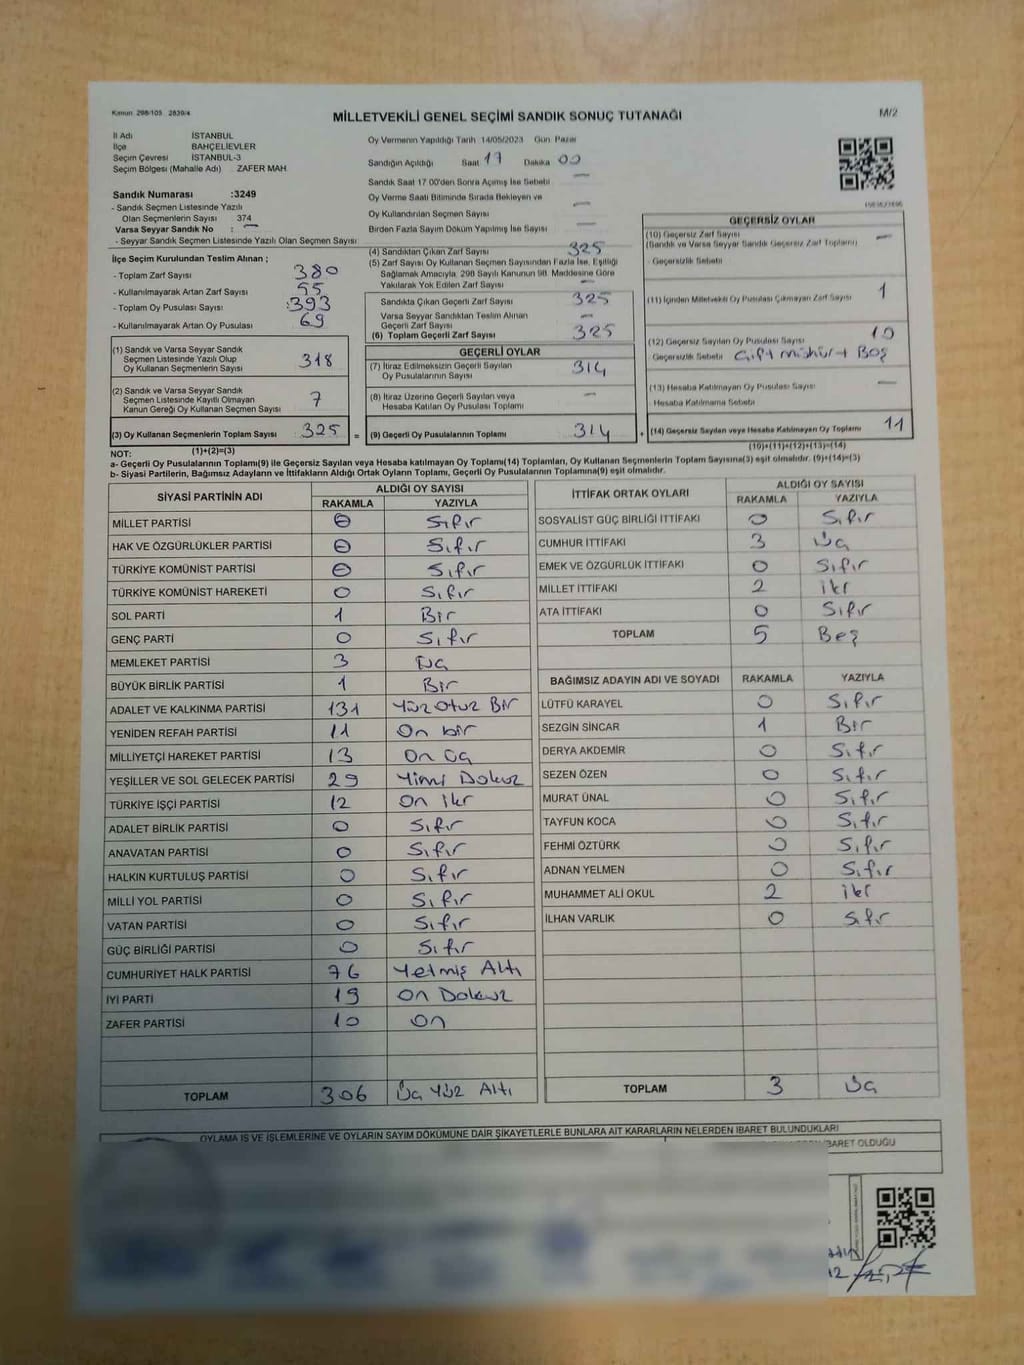 Kanun 298/105 2839/4
MİLLETVEKİLİ GENEL SEÇİMİ SANDIK SONUÇ TUTANAĞI
M/2
İl Adı İSTANBUL
İlçe BAHÇELİEVLER
Seçim Çevresi İSTANBUL-3
Seçim Bölgesi (Mahalle Adı) ZAFER MAH
Sandık Numarası :3249
- Sandık Seçmen Listesinde Yazılı
Olan Seçmenlerin Sayısı 374
Varsa Seyyar Sandık No : —
- Seyyar Sandık Seçmen Listesinde Yazılı Olan Seçmen Sayısı
Oy Vermenin Yapıldığı Tarih 14/05/2023 Gün Pazar
Sandığın Açıldığı Saat 17 Dakika 00
Sandık Saat 17:00'den Sonra Açılmış İse Sebebi —
Oy Verme Saati Bitiminde Sırada Bekleyen ve
Oy Kullandırılan Seçmen Sayısı —
Birden Fazla Sayım Döküm Yapılmış İse Sayısı —
İlçe Seçim Kurulundan Teslim Alınan ;
- Toplam Zarf Sayısı 380
- Kullanılmayarak Artan Zarf Sayısı 55
- Toplam Oy Pusulası Sayısı :393
- Kullanılmayarak Artan Oy Pusulası 69
(1) Sandık ve Varsa Seyyar Sandık
Seçmen Listesinde Yazılı Olup
Oy Kullanan Seçmenlerin Sayısı 318
(2) Sandık ve Varsa Seyyar Sandık
Seçmen Listesinde Kayıtlı Olmayan
Kanun Gereği Oy Kullanan Seçmen Sayısı 7
(3) Oy Kullanan Seçmenlerin Toplam Sayısı 325 =
(1)+(2)=(3)
(4) Sandıktan Çıkan Zarf Sayısı 325
(5) Zarf Sayısı Oy Kullanan Seçmen Sayısından Fazla İse, Eşitliği
Sağlamak Amacıyla, 298 Sayılı Kanunun 98. Maddesine Göre
Yakılarak Yok Edilen Zarf Sayısı —
Sandıkta Çıkan Geçerli Zarf Sayısı 325
Varsa Seyyar Sandıktan Teslim Alınan
Geçerli Zarf Sayısı —
(6) Toplam Geçerli Zarf Sayısı 325
GEÇERLİ OYLAR
(7) İtiraz Edilmeksizin Geçerli Sayılan
Oy Pusulalarının Sayısı 314
(8) İtiraz Üzerine Geçerli Sayılan veya
Hesaba Katılan Oy Pusulası Toplamı —
(9) Geçerli Oy Pusulalarının Toplamı 314 +
GEÇERSİZ OYLAR
(10) Geçersiz Zarf Sayısı
(Sandık ve Varsa Seyyar Sandık Geçersiz Zarf Toplamı) —
Geçersizlik Sebebi
(11) İçinden Milletvekili Oy Pusulası Çıkmayan Zarf Sayısı 1
(12) Geçersiz Sayılan Oy Pusulası Sayısı 10
Geçersizlik Sebebi Çift mühür + Boş
(13) Hesaba Katılmayan Oy Pusulası Sayısı —
Hesaba Katılmama Sebebi
(14) Geçersiz Sayılan veya Hesaba Katılmayan Oy Toplamı 11
(10)+(11)+(12)+(13)=(14)
NOT:
a- Geçerli Oy Pusulalarının Toplamı(9) ile Geçersiz Sayılan veya Hesaba katılmayan Oy Toplamı(14) Toplamları, Oy Kullanan Seçmenlerin Toplam Sayısına(3) eşit olmalıdır. (9)+(14)=(3)
b- Siyasi Partilerin, Bağımsız Adayların ve İttifakların Aldığı Ortak Oyların Toplamı, Geçerli Oy Pusulalarının Toplamına(9) eşit olmalıdır.
SİYASİ PARTİNİN ADI ALDIĞI OY SAYISI
RAKAMLA YAZIYLA
MİLLET PARTİSİ 0 Sıfır
HAK VE ÖZGÜRLÜKLER PARTİSİ 0 Sıfır
TÜRKİYE KOMÜNİST PARTİSİ 0 Sıfır
TÜRKİYE KOMÜNİST HAREKETİ 0 Sıfır
SOL PARTİ 1 Bir
GENÇ PARTİ 0 Sıfır
MEMLEKET PARTİSİ 3 Üç
BÜYÜK BİRLİK PARTİSİ 1 Bir
ADALET VE KALKINMA PARTİSİ 131 Yüz Otuz Bir
YENİDEN REFAH PARTİSİ 11 On bir
MİLLİYETÇİ HAREKET PARTİSİ 13 On Üç
YEŞİLLER VE SOL GELECEK PARTİSİ 29 Yirmi Dokuz
TÜRKİYE İŞÇİ PARTİSİ 12 On iki
ADALET BİRLİK PARTİSİ 0 Sıfır
ANAVATAN PARTİSİ 0 Sıfır
HALKIN KURTULUŞ PARTİSİ 0 Sıfır
MİLLİ YOL PARTİSİ 0 Sıfır
VATAN PARTİSİ 0 Sıfır
GÜÇ BİRLİĞİ PARTİSİ 0 Sıfır
CUMHURİYET HALK PARTİSİ 76 Yetmiş Altı
İYİ PARTİ 19 On Dokuz
ZAFER PARTİSİ 10 On
TOPLAM 306 Üç Yüz Altı
İTTİFAK ORTAK OYLARI ALDIĞI OY SAYISI
RAKAMLA YAZIYLA
SOSYALİST GÜÇ BİRLİĞİ İTTİFAKI 0 Sıfır
CUMHUR İTTİFAKI 3 Üç
EMEK VE ÖZGÜRLÜK İTTİFAKI 0 Sıfır
MİLLET İTTİFAKI 2 iki
ATA İTTİFAKI 0 Sıfır
TOPLAM 5 Beş
BAĞIMSIZ ADAYIN ADI VE SOYADI RAKAMLA YAZIYLA
LÜTFÜ KARAYEL 0 Sıfır
SEZGİN SİNCAR 1 Bir
DERYA AKDEMİR 0 Sıfır
SEZEN ÖZEN 0 Sıfır
MURAT ÜNAL 0 Sıfır
TAYFUN KOCA 0 Sıfır
FEHMİ ÖZTÜRK 0 Sıfır
ADNAN YELMEN 0 Sıfır
MUHAMMET ALİ OKUL 2 iki
İLHAN VARLIK 0 Sıfır
TOPLAM 3 Üç
OYLAMA İŞ VE İŞLEMLERİNE VE OYLARIN SAYIM DÖKÜMÜNE DAİR ŞİKAYETLERLE BUNLARA AİT KARARLARIN NELERDEN İBARET BULUNDUKLARI
İBARET OLDUĞU